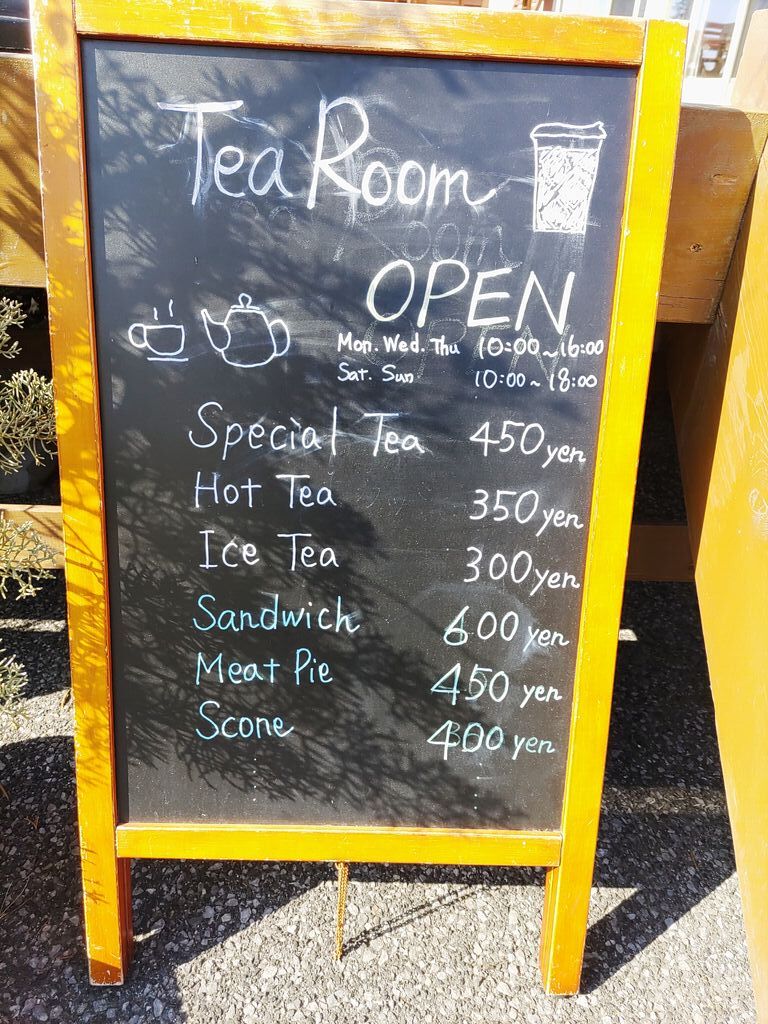 Tea Room
OPEN
Mon. Wed. Thu 10:00~16:00
Sat. Sun 10:00~18:00
Special Tea 450 yen
Hot Tea 350 yen
Ice Tea 300 yen
Sandwich 600 yen
Meat Pie 450 yen
Scone 400 yen